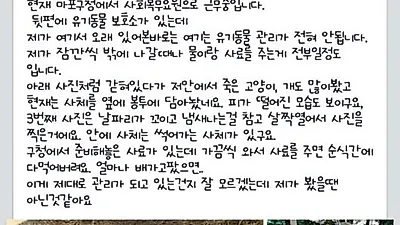 현재 마포구청에서 사회복무요원으로 근무중입니다.
뒷편에 유기동물 보호소가 있는데
제가 여기서 오래 있어본바로는 여기는 유기동물 관리가 전혀 안됩니다.
제가 잠깐씩 밖에 나갈때나 물이랑 사료를 주는게 전부일정도
입니다.
아래 사진처럼 갇혀있다가 저안에서 죽은 고양이, 개도 많이봤고
현재는 사체를 옆에 봉투에 담아놨네요. 피가 떨어진 모습도 보이구요,
3번째 사진은 날파리가 꼬이고 냄새나는걸 참고 살짝열어서 사진을
찍은거에요. 안에 사체는 썩어가는 사체가 있구요.
구청에서 준비해놓은 사료가 있는데 가끔씩 와서 사료를 주면 순식간에
다먹어버려요. 얼마나 배가고팠으면..
이게 제대로 관리가 되고 있는건지 잘 모르겠는데 제가 봤을땐
아닌것같아요